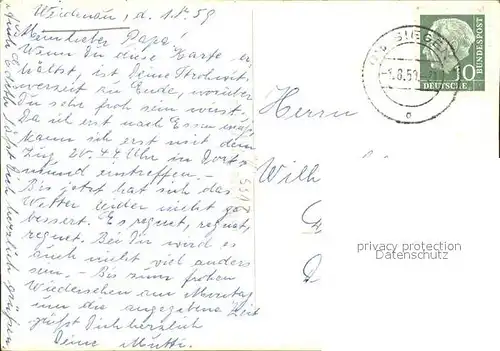 Weidenau, d. 1.8.59
Mein lieber Papa!
Wenn Du diese Karte er-
hältst, ist Deine Strohwit-
werzeit zu Ende, worüber
Du sehr froh sein wirst.
Da ich erst nach Essen
kann ich erst mit dem
Zug 20.44 Uhr in Dort-
mund eintreffen. -
Bis jetzt hat sich das
Wetter leider nicht ge-
bessert. Es regnet, regnet,
regnet. Bei Dir wird es
auch nicht viel anders
sein. - Bis zum frohen
Wiedersehen am Montag
um die angegebene Zeit
grüßt Dich herzlich
Deine Mutti.
läßt Dich herzlich grüßen.
SIEGEN
1.8.59
10
DEUTSCHE
BUNDESPOST
Herrn
Wilh
privacy protection
Datenschutz